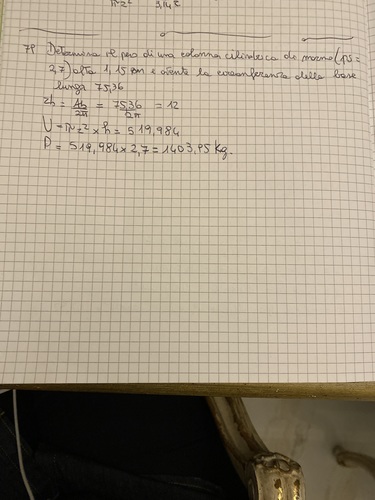 πr² 3,14r²
78 Determina il peso di una colonna cilindrica di marmo (ps =
2,7) alta 1,15 m e avente la circonferenza della base
lunga 75,36
rb = Ab/2π = 75,36/2π = 12
V = πr² × h = 519,984
P = 519,984 × 2,7 = 1403,95 Kg.